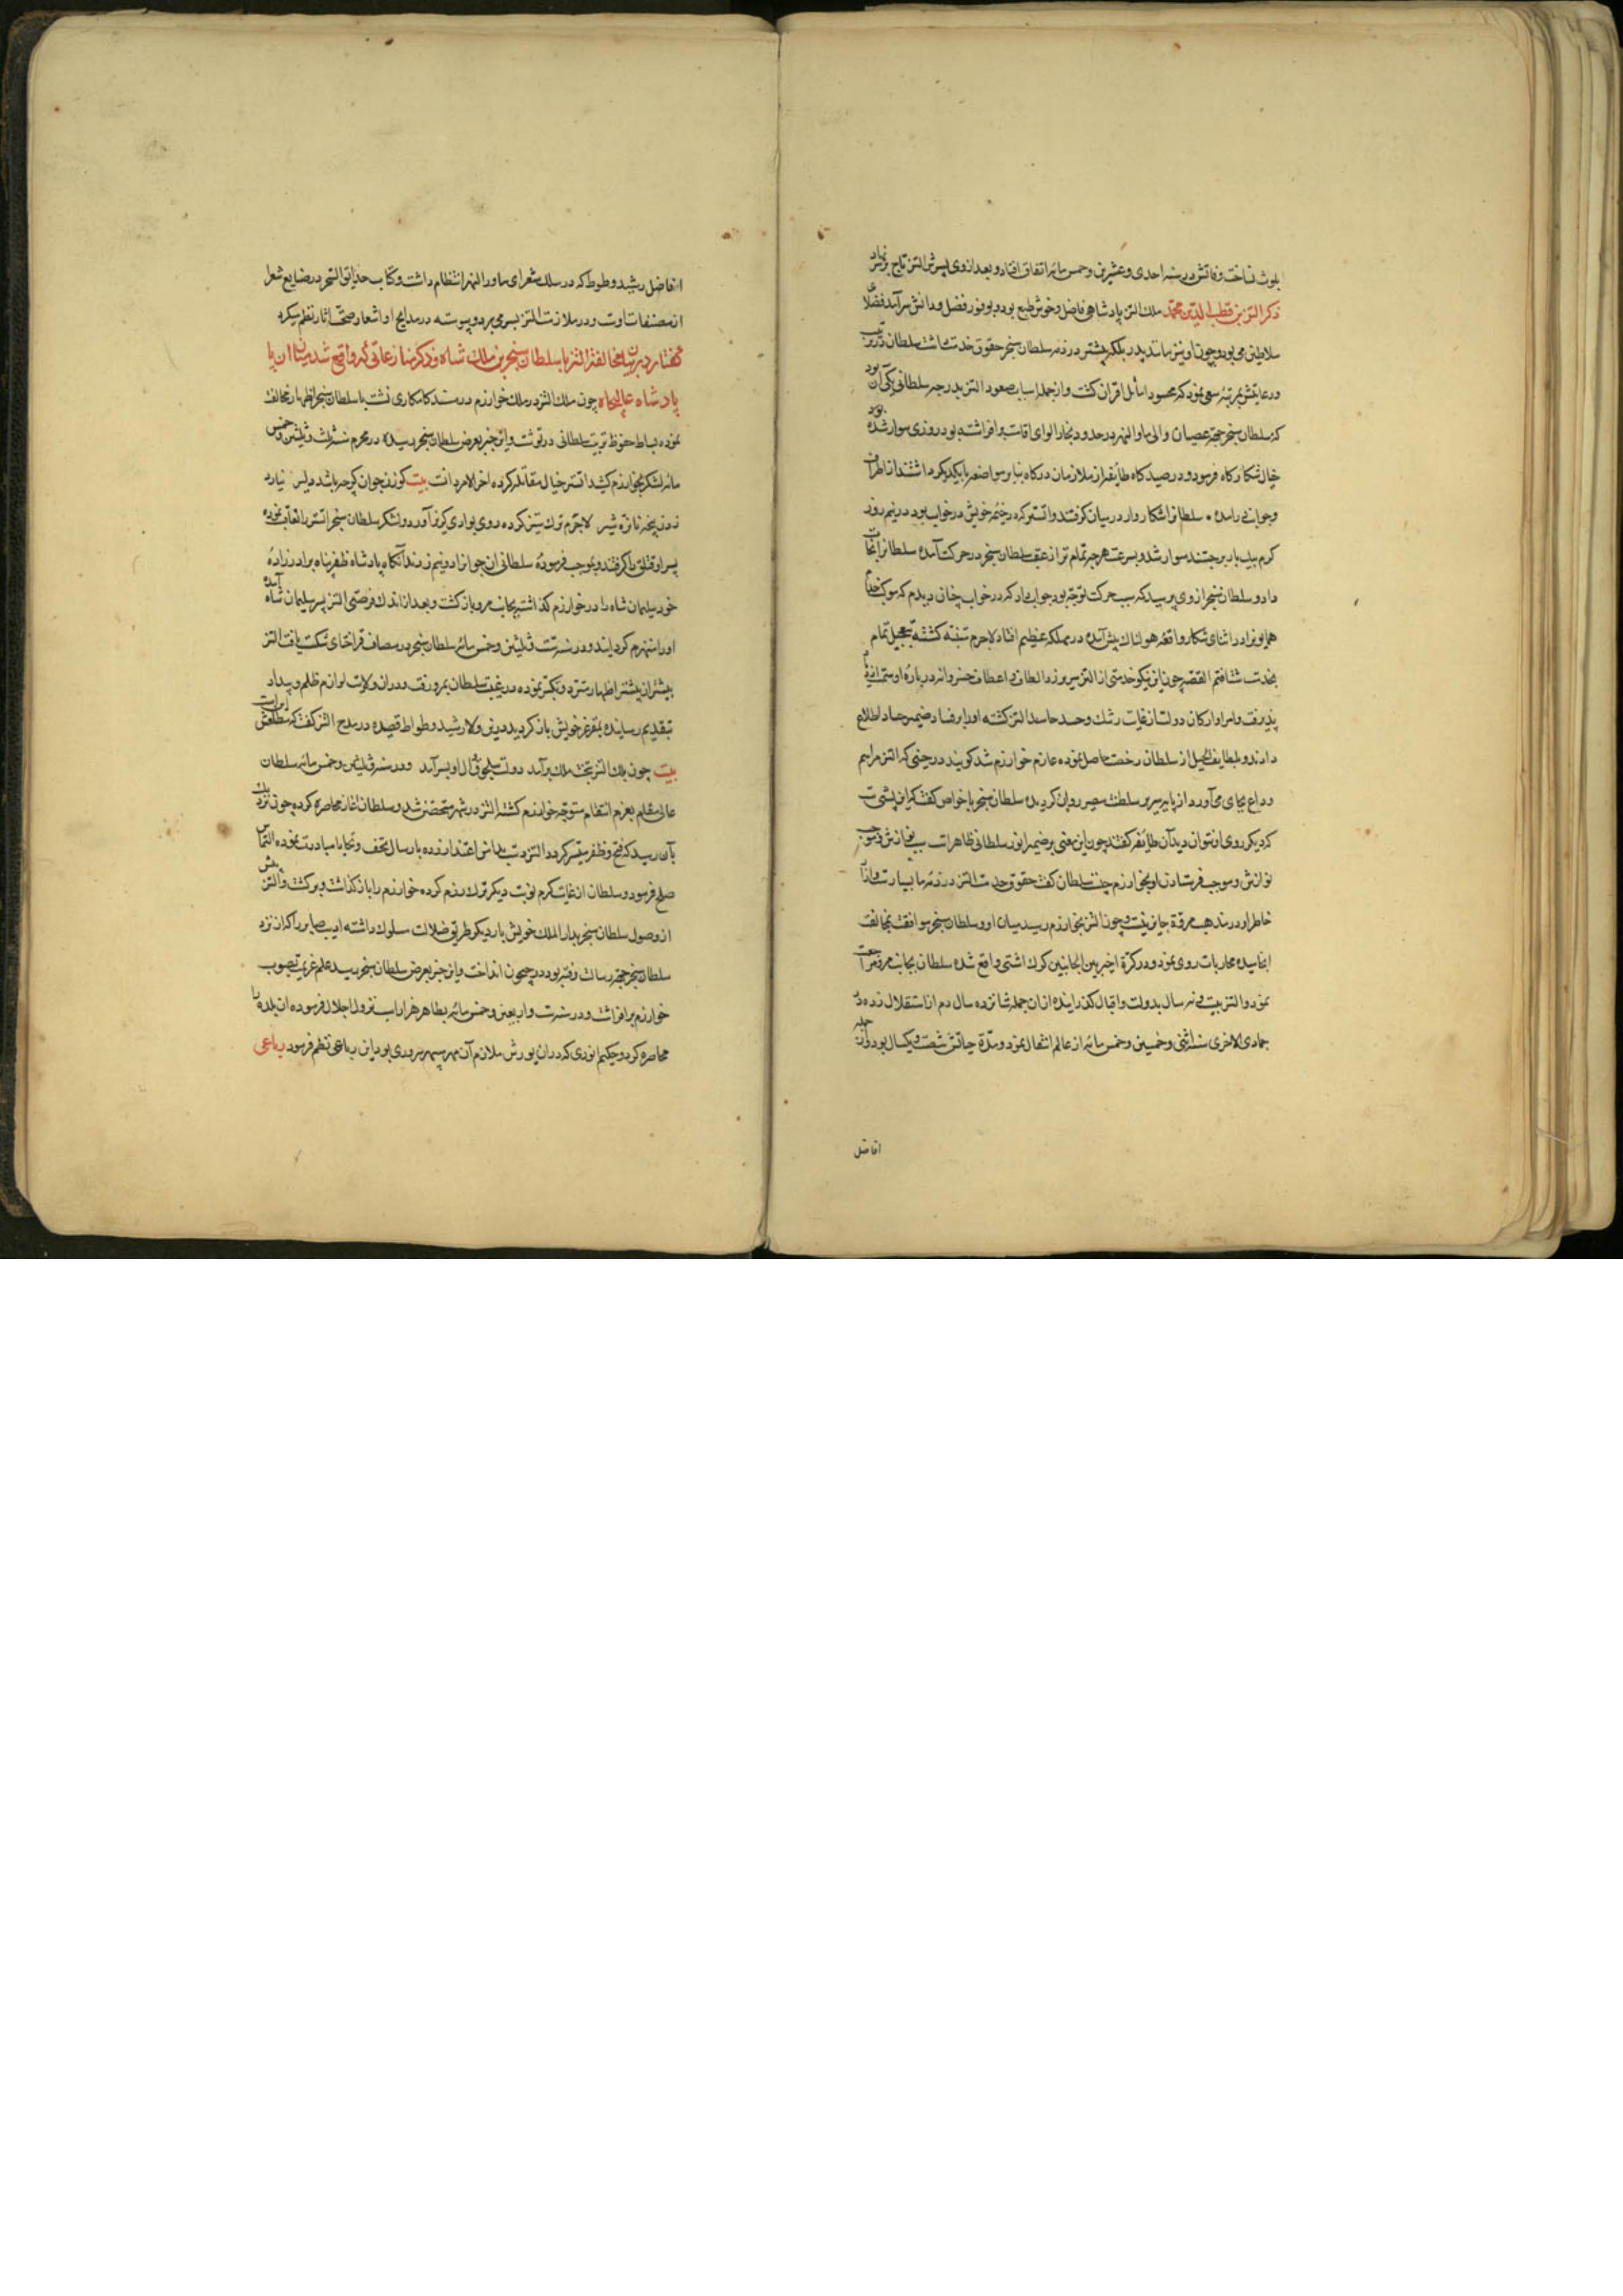 بلوث نساخت وفاتش در سنه احدی و عشرین و خمس مائه اتفاق افتاد و بعد از وی پسرش اتسز تاج بر سر نهاد
ذکر اتسز بن قطب الدین محمد ملک اتسز پادشاهی فاضل و خوش طبع بود و بوفور فضل و دانش سرآمد فضلای
سلاطین می بود و چون او نیز مانند پدر بلکه بیشتر در ذمه سلطان سنجر حقوق خدمت داشت سلطان در تربیت
و رعایتش بمرتبه سعی نمود که محسود اماثل و اقران گشت و از جمله اسباب صعود اتسز بدرجه سلطانی یکی آن بود
که سلطان سنجر بجهة عصیان والی ماوراالنهر در حدود بخارا لوای اقامت برافراشته بود روزی سوار شده
خیال شکارگاه فرمود و در صیدگاه طایفه از ملازمان درگاه بنابر مواضعه با یکدیگر داشتند از اطراف
و جوانب درآمده سلطانرا شکاروار در میان گرفتند و اتسز که در خیمه خویش در خواب بود در نیم روز
گرم بیدار برجست سوار شد و بسرعت هرچه تمامتر از عقب سلطان سنجر در حرکت آمده سلطانرا نجات
داد و سلطان سنجر از وی پرسید که سبب حرکت تو چه بود جواب داد که در خواب چنان دیدم که موکب
همایون را در اثنای شکار واقعه هولناک پیش آمده در مهلکه عظیم افتاد لاجرم متنبه گشته بتعجیل تمام
بخدمت شتافتم القصه چون این نیکو خدمتی از اتسز سر زد الطاف و اعطاف خسروانه درباره او
پذیرفت و امرا و ارکان دولت از غایت رشک و حسد حاسد اتسز گشته او را بر فساد ضمیر اطلاع
دادند و بلطایف الحیل از سلطان رخصت حاصل نموده عازم خوارزم شد گویند در حینی که اتسز مراسم
وداع بجای می آورد از پایه سریر سلطنت مصیر روان گردید سلطان سنجر با خواص گفت که این پشتی است
که دیگر روی او نتوان دید آن طایفه گفتند چون این معنی بر ضمیر انور سلطانی ظاهر است سبب نوازش
نوازش و موجب فرستادن او بخوارزم چیست سلطان گفت حقوق خدمت اتسز در ذمه ما بسیار است
خاطر او در مذهب مروة جایز نیست و چون اتسز بخوارزم رسید میان او و سلطان سنجر موافقت بمخالفت
انجامیده محاربات روی نمود و در کرة اخیر بین الجانبین گرگ آشتی واقع شده سلطان بجانب مرو مراجعت
نمود و اتسز بیست و نه سال بدولت و اقبال گذرانیده از آن جمله شانزده سال دم از استقلال زده در
جمادی الاخری سنه اثنی و خمسین و خمس مائه از عالم انتقال نمود و مدة حیاتش شصت و یکسال بود و از جمله
افاضل
افاضل رشید وطواط که در سلک شعرای ماوراالنهر انتظام داشت و کتاب حدایق السحر در صنایع شعر
از مصنفات اوست و در ملازمت اتسز بسر می برد و پیوسته در مدایح او اشعار نظم میکرد
گفتار در بیان مخالفة اتسز با سلطان سنجر بن ملک شاه و ذکر منازعاتی که واقع شد میان ان
پادشاه عالیجاه چون ملک اتسز در ملک خوارزم در مسند کامکاری نشست با سلطان سنجر اظهار مخالفت
نموده بساط حقوق تربیت سلطانی درنوشت و این خبر بعرض سلطان سنجر رسیده در محرم سنه ثلث و ثلثین و خمس
مائه لشکر بخوارزم کشید اتسز خیال مقاتله کرده اخر الامر دانست بیت گوزن جوان گرچه باشد دلیر نیارد
زدن پنجه با نره شیر لاجرم ترک ستیز کرده روی بوادی گریز آورد و لشکر سلطان سنجر اتسز را تعاقب نموده
پسر او قتلق را گرفتند و بموجب فرموده سلطانی ان جوانرا دو نیم زدند آنگاه پادشاه ظفر پناه برادرزاده
خود سلیمان شاه را در خوارزم گذاشته بجانب مرو بازگشت و بعد از اندک فرصتی اتسز بر سر سلیمان شاه آمده
او را منهزم گردانید و در سنه ست و ثلثین و خمس مائه سلطان سنجر در مصاف قراختای شکست یافت اتسز
بیشتر از پیشتر اظهار تمرد و تکبر نموده در غیبت سلطان بمرو رفت و در ان ولایت لوازم ظلم و بیداد
بتقدیم رسانیده بمقر عز خویش بازگردید و در این ولا رشید وطواط قصیده در مدح اتسز گفت که مطلعش اینست
بیت چون ملک اتسز بتخت ملک برآمد دولت سلجوق و آل او بسر آمد و در سنه ثمان و ثلثین و خمس مائه سلطان
عالی مقام بعزم انتقام متوجه خوارزم گشته اتسز در شهر متحصن شد و سلطان اغاز محاصره کرده چون نزدیک
بآن رسید که فتح و ظفر میسر گردد اتسز دست بدامن اعتذار زده بارسال تحف و هدایا مبادرت نموده التماس
صلح فرمود و سلطان از غایت کرم نوبت دیگر ترک رزم کرده خوارزم را باز گذاشت و برگشت و اتسز پیش
از وصول سلطان سنجر بدار الملک خویش بار دیگر طریق ضلالت سلوک داشته ادیب صابر را که از نزد
سلطان سنجر بجهة رسالت رفته بود در جیحون انداخت و این خبر بعرض سلطان سنجر رسید علم عزیمت بصوب
خوارزم برافراشت و در سنه ست و اربعین و خمس مائه بظاهر هزاراسب نزول اجلال فرموده ان بلده را
محاصره کرد و حکیم انوری که در ان یورش ملازم آن مهر سپهر سروری بود این رباعی نظم فرمود رباعی